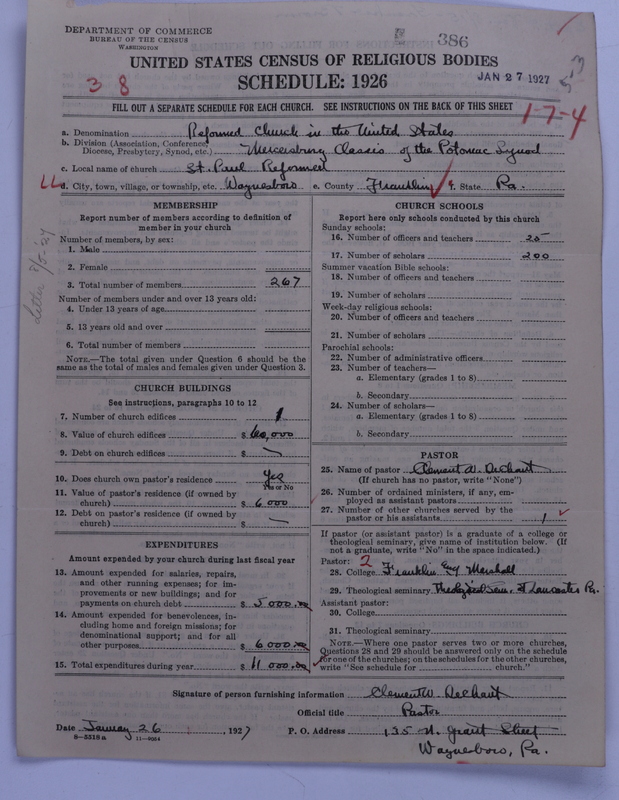 DEPARTMENT OF COMMERCE
BUREAU OF THE CENSUS
WASHINGTON
386
UNITED STATES CENSUS OF RELIGIOUS BODIES
SCHEDULE: 1926
JAN 27 1927
3 8
FILL OUT A SEPARATE SCHEDULE FOR EACH CHURCH. SEE INSTRUCTIONS ON THE BACK OF THIS SHEET
1-7-4
a. Denomination Reformed Church in the United States
b. Division (Association, Conference, Diocese, Presbytery, Synod, etc.) Mercersburg Classis of the Potomac Synod
c. Local name of church St. Paul Reformed
d. City, town, village, or township, etc. Waynesboro e. County Franklin f. State Pa.
MEMBERSHIP
Report number of members according to definition of
member in your church
Number of members, by sex:
1. Male
2. Female
3. Total number of members 267
Number of members under and over 13 years old:
4. Under 13 years of age
5. 13 years old and over
6. Total number of members
NOTE.—The total given under Question 6 should be the
same as the total of males and females given under Question 3.
CHURCH BUILDINGS
See instructions, paragraphs 10 to 12
7. Number of church edifices 1
8. Value of church edifices $ 60,000
9. Debt on church edifices $ —
10. Does church own pastor's residence Yes
Yes or No
11. Value of pastor's residence (if owned by
church) $ 6000
12. Debt on pastor's residence (if owned by
church) $ —
EXPENDITURES
Amount expended by your church during last fiscal year
13. Amount expended for salaries, repairs,
and other running expenses; for im-
provements or new buildings; and for
payments on church debt $ 5000.00
14. Amount expended for benevolences, in-
cluding home and foreign missions; for
denominational support; and for all
other purposes $ 6000.00
15. Total expenditures during year $ 11 000.00
CHURCH SCHOOLS
Report here only schools conducted by this church
Sunday schools:
16. Number of officers and teachers 25
17. Number of scholars 200
Summer vacation Bible schools:
18. Number of officers and teachers
19. Number of scholars
Week-day religious schools:
20. Number of officers and teachers
21. Number of scholars
Parochial schools:
22. Number of administrative officers
23. Number of teachers—
a. Elementary (grades 1 to 8)
b. Secondary
24. Number of scholars—
a. Elementary (grades 1 to 8)
b. Secondary
PASTOR
25. Name of pastor Clement W. DeChant
(If church has no pastor, write "None")
26. Number of ordained ministers, if any, em-
ployed as assistant pastors
27. Number of other churches served by the
pastor or his assistants 1
If pastor (or assistant pastor) is a graduate of a college or
theological seminary, give name of institution below. (If
not a graduate, write "No" in the space indicated.)
Pastor: 2
28. College Franklin and Marshall
29. Theological seminary Theological Sem. at Lancaster Pa.
Assistant pastor:
30. College
31. Theological seminary
NOTE.—Where one pastor serves two or more churches,
Questions 28 and 29 should be answered only on the schedule
for one of the churches; on the schedules for the other churches,
write "See schedule for church."
Signature of person furnishing information Clement W. DeChant
Official title Pastor
Date January 26, 1927 P. O. Address 135 N. Grant Street
8-5318a 11-9064
Waynesboro, Pa.